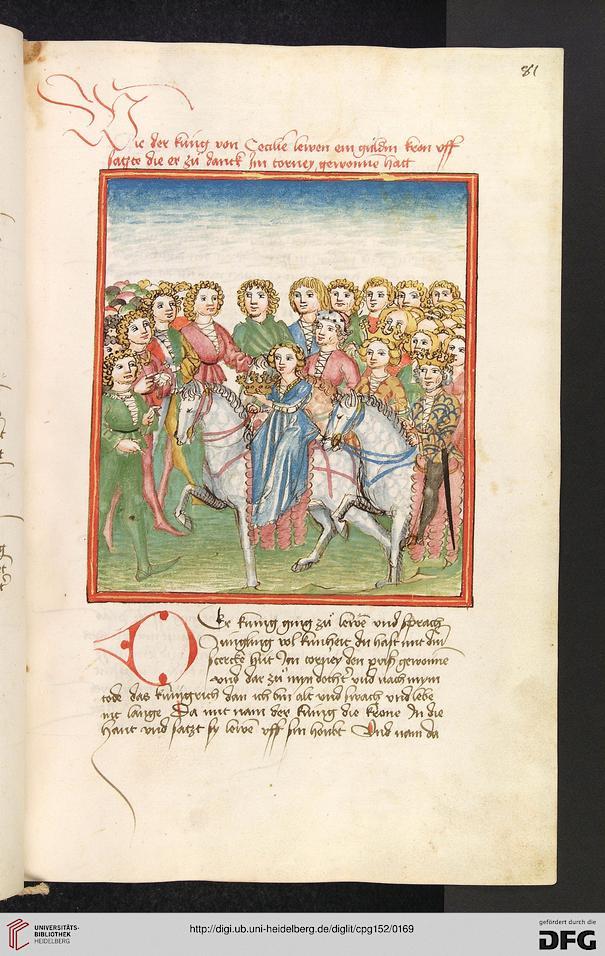 81
Wie der kunig von Cecilie lewen ein guldin kron uff
satzte die er zu danck im torney gewonne hatt
Der kunig ging zu lewe und sprach
Jungling vol kunheit du hast mit din
stercke hut Im torney den priß gewonne
und dar zu myn dochter und nach mym
tode das kunigrich dan ich bin alt und swach und lebe
nit lange Da mit nam der kunig die krone In die
hant und satzt sy lewen uff sin houbt Und nam da
UNIVERSITÄTS-
BIBLIOTHEK
HEIDELBERG
http://digi.ub.uni-heidelberg.de/diglit/cpg152/0169
gefördert durch die
DFG